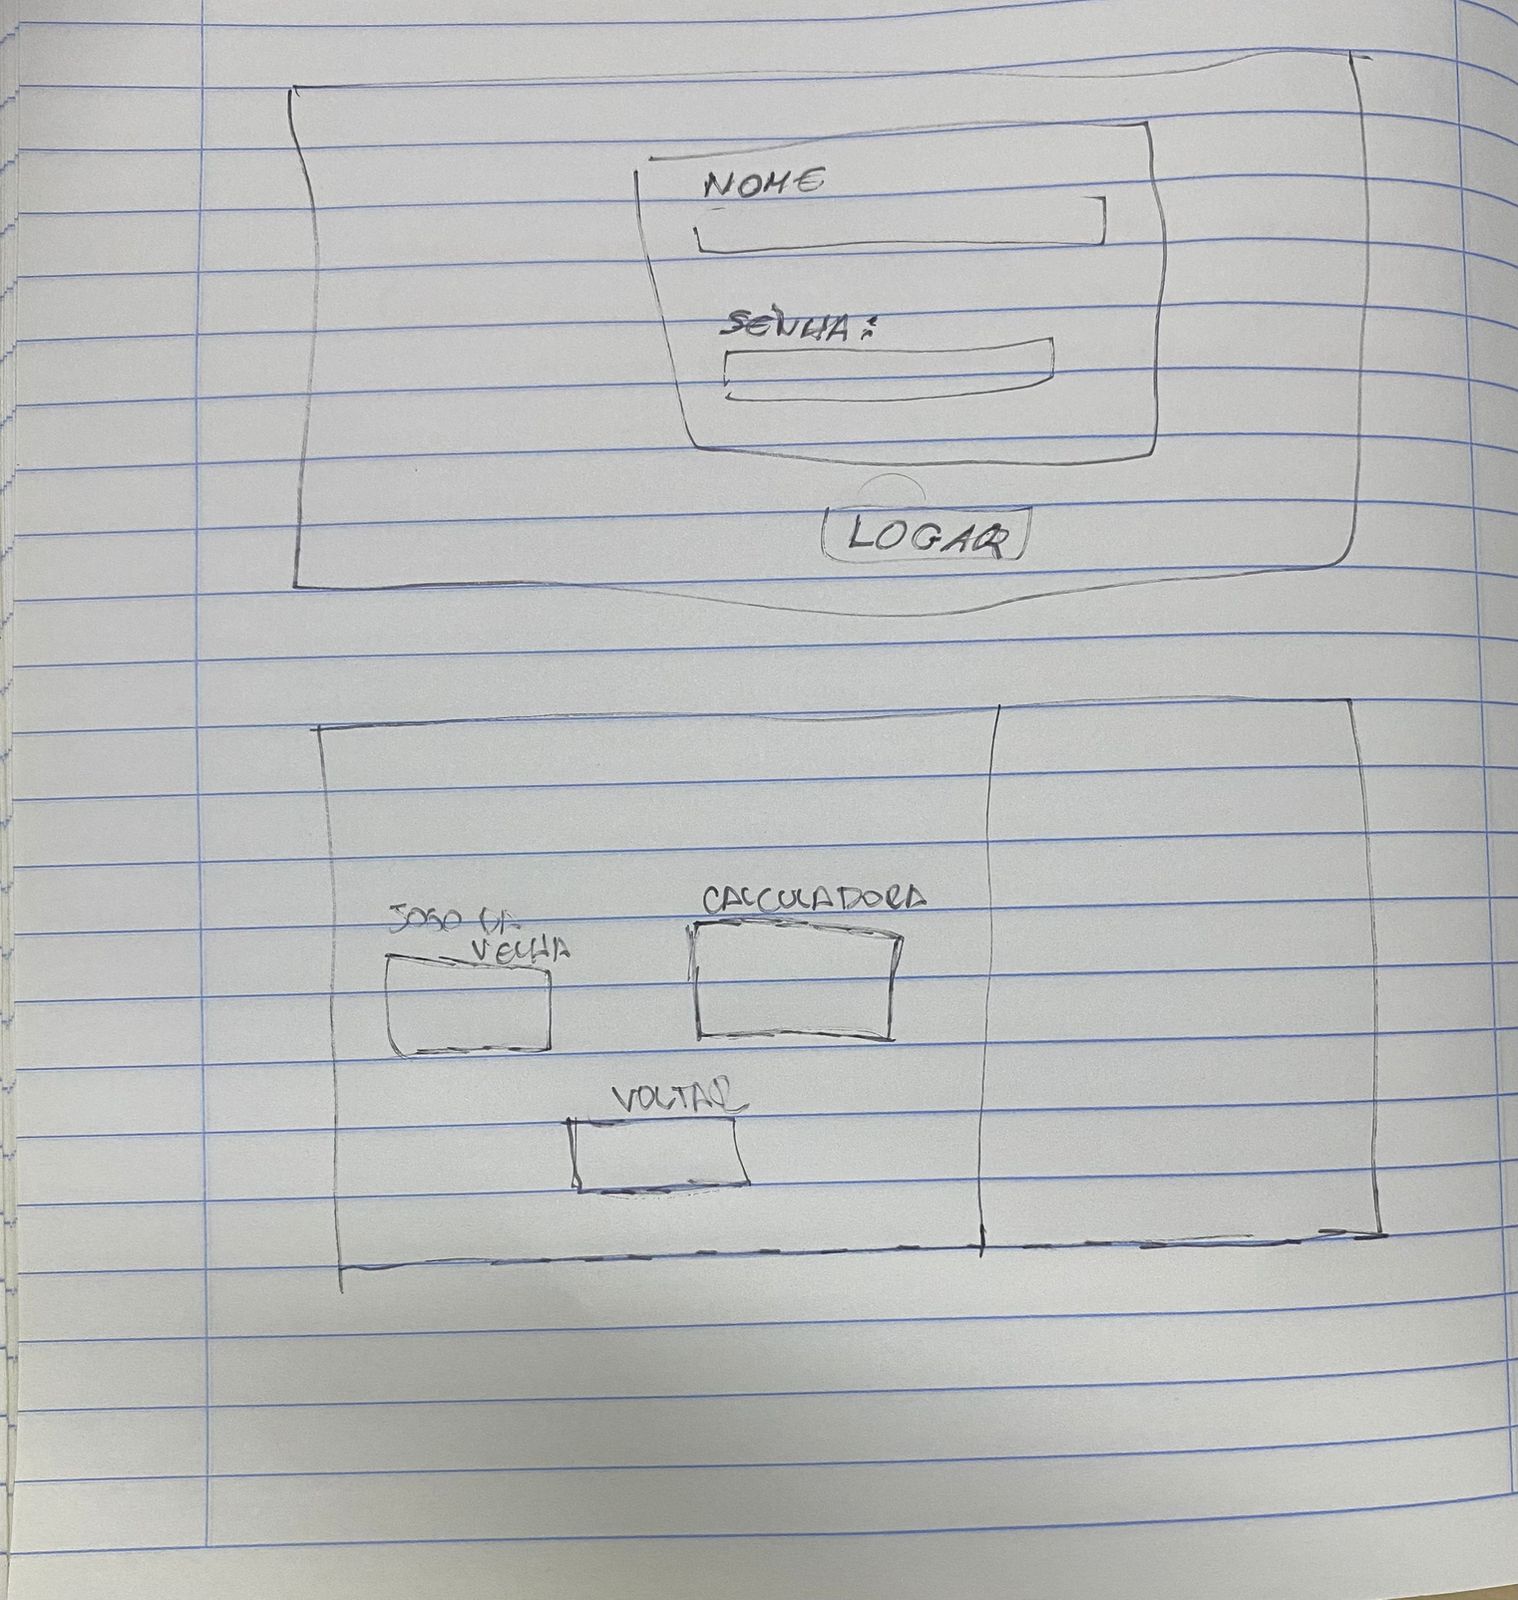 NOME
SENHA:
LOGAR
JOGO DA
VELHA
CALCULADORA
VOLTAR